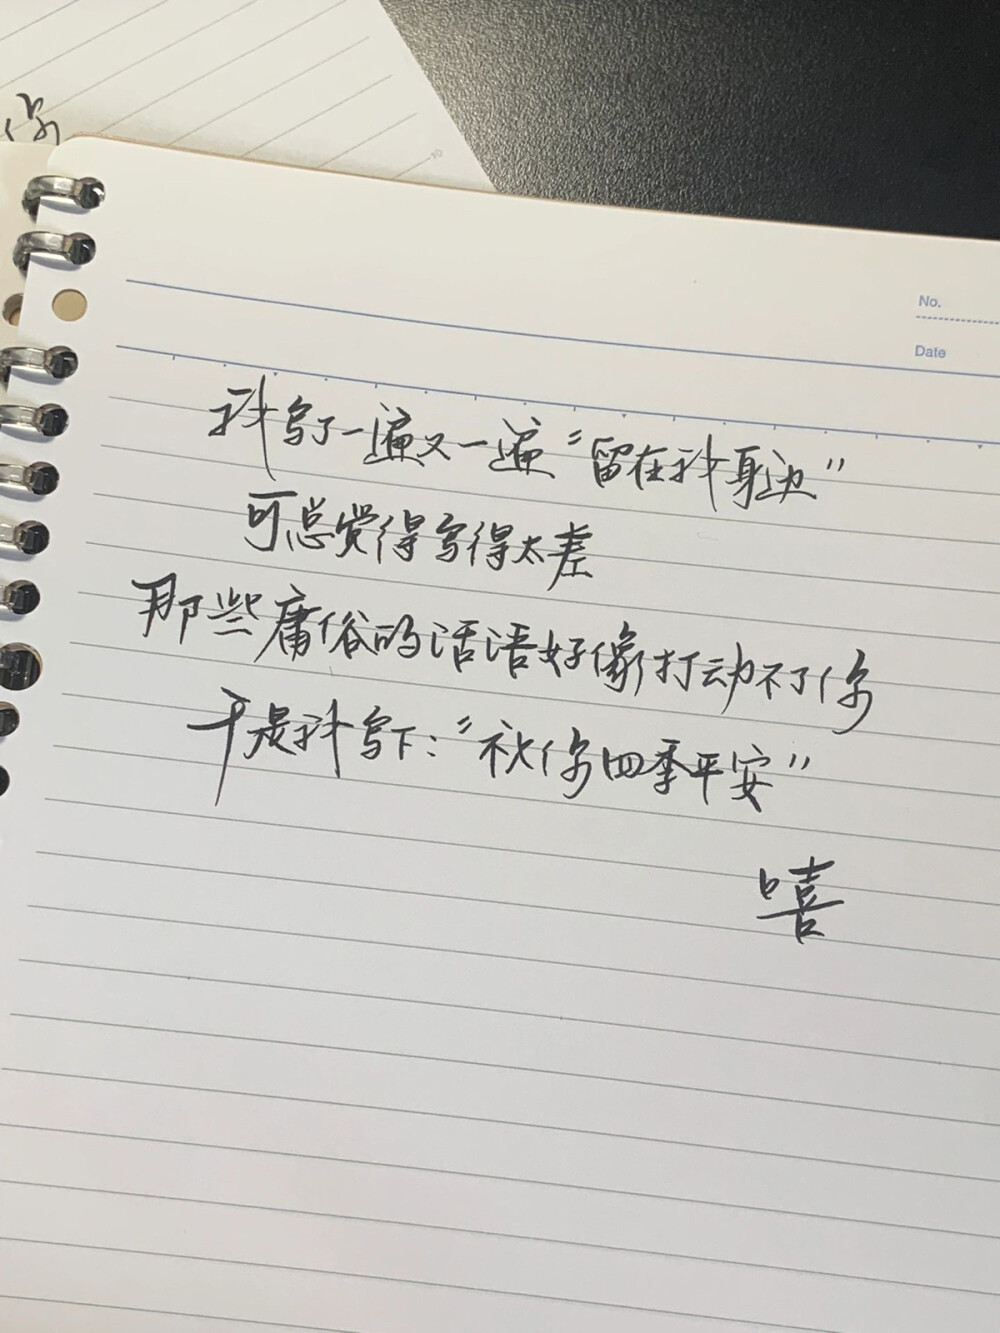 你
No.
Date
我写了一遍又一遍“留在我身边”
可总觉得写得太差
那些庸俗的话语好像打动不了你
于是我写下：“祝你四季平安”
嘻